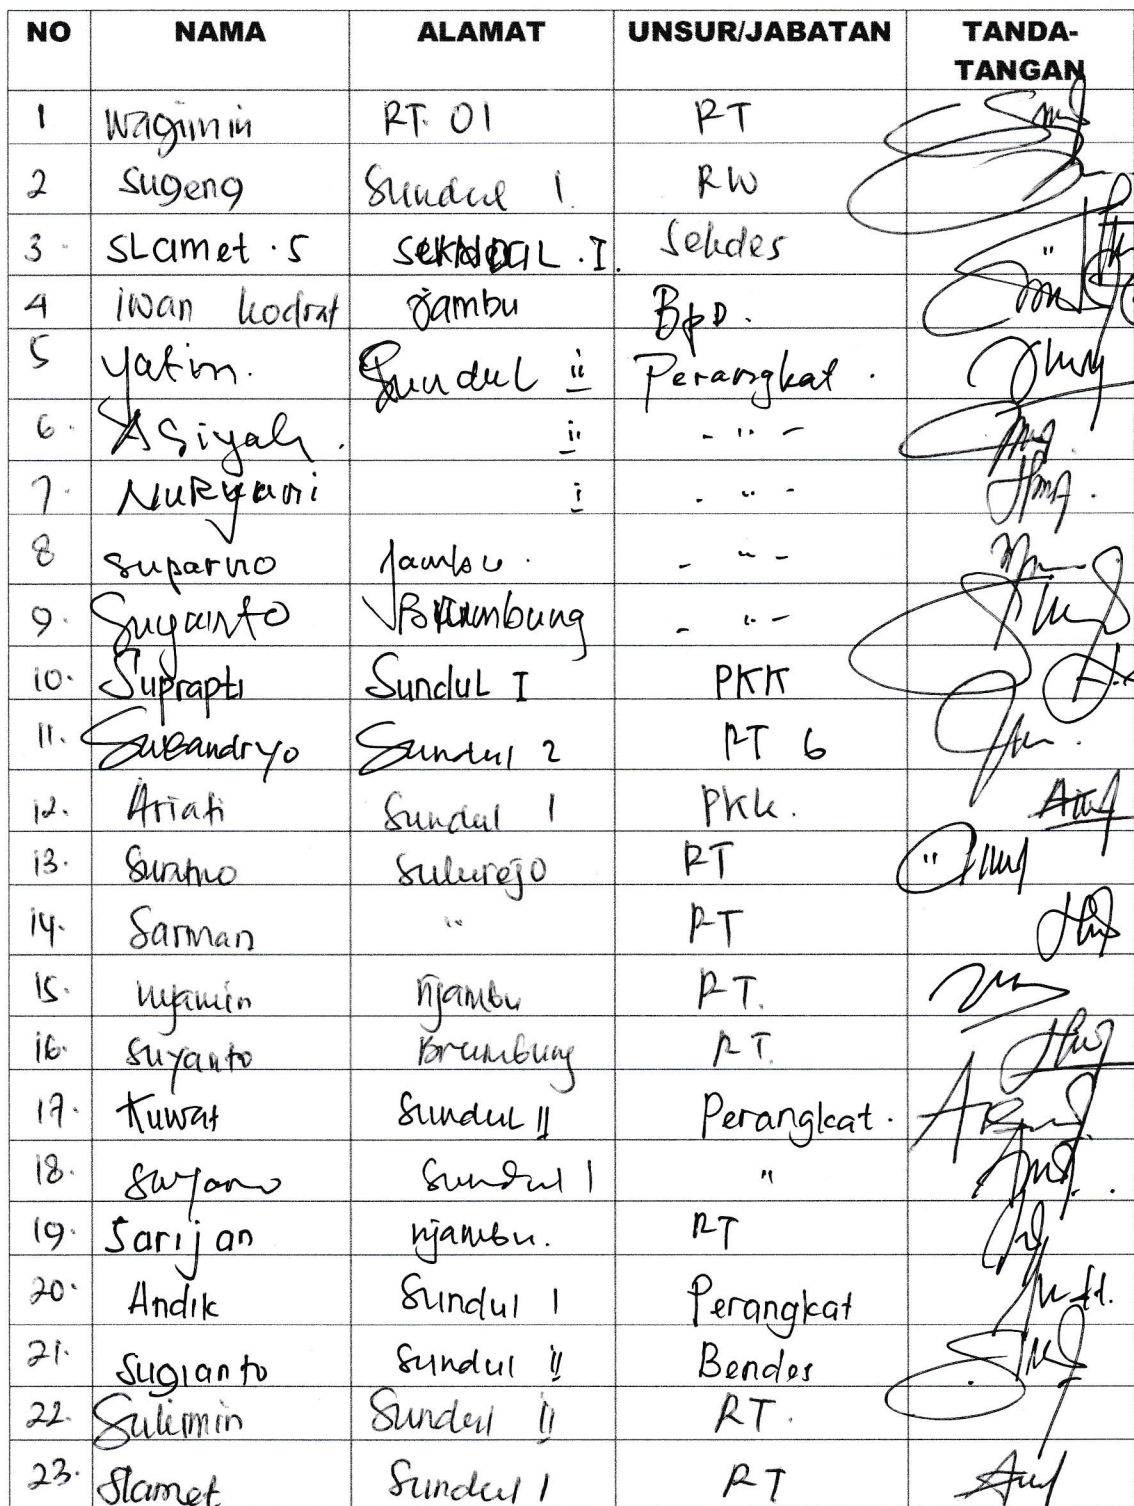 NO NAMA ALAMAT UNSUR/JABATAN TANDA-
TANGAN
1 Wagimin RT. 01 RT
2 Sugeng Sundul 1. RW
3. SLamet . S I. Sekdes
4 iwan kodrat Jambu BpD.
5 Yatim. Sundul ii Perangkat .
6. ASiyah . ii - " -
7. NuRyani i - " -
8 Suparno Jambu . - " -
9. Suyanto Brumbung - " -
10. Suprapti SunduL I PKK
11. Sundul 2 RT 6
12. Ariati Sundul 1 PKK.
13. Suratno Sukorejo RT
14. Sarman " RT
15. Nyamin Njambu RT.
16. Suyanto Brumbung RT.
17. Kuwat Sundul II Perangkat .
18. Suyono Sundul 1 "
19. Sarijan Njambu. RT
20. Andik Sundul 1 Perangkat
21. Sugianto Sundul ii Bendes
22. Sukimin Sundul ii RT.
23. Slamet Sundul 1 RT